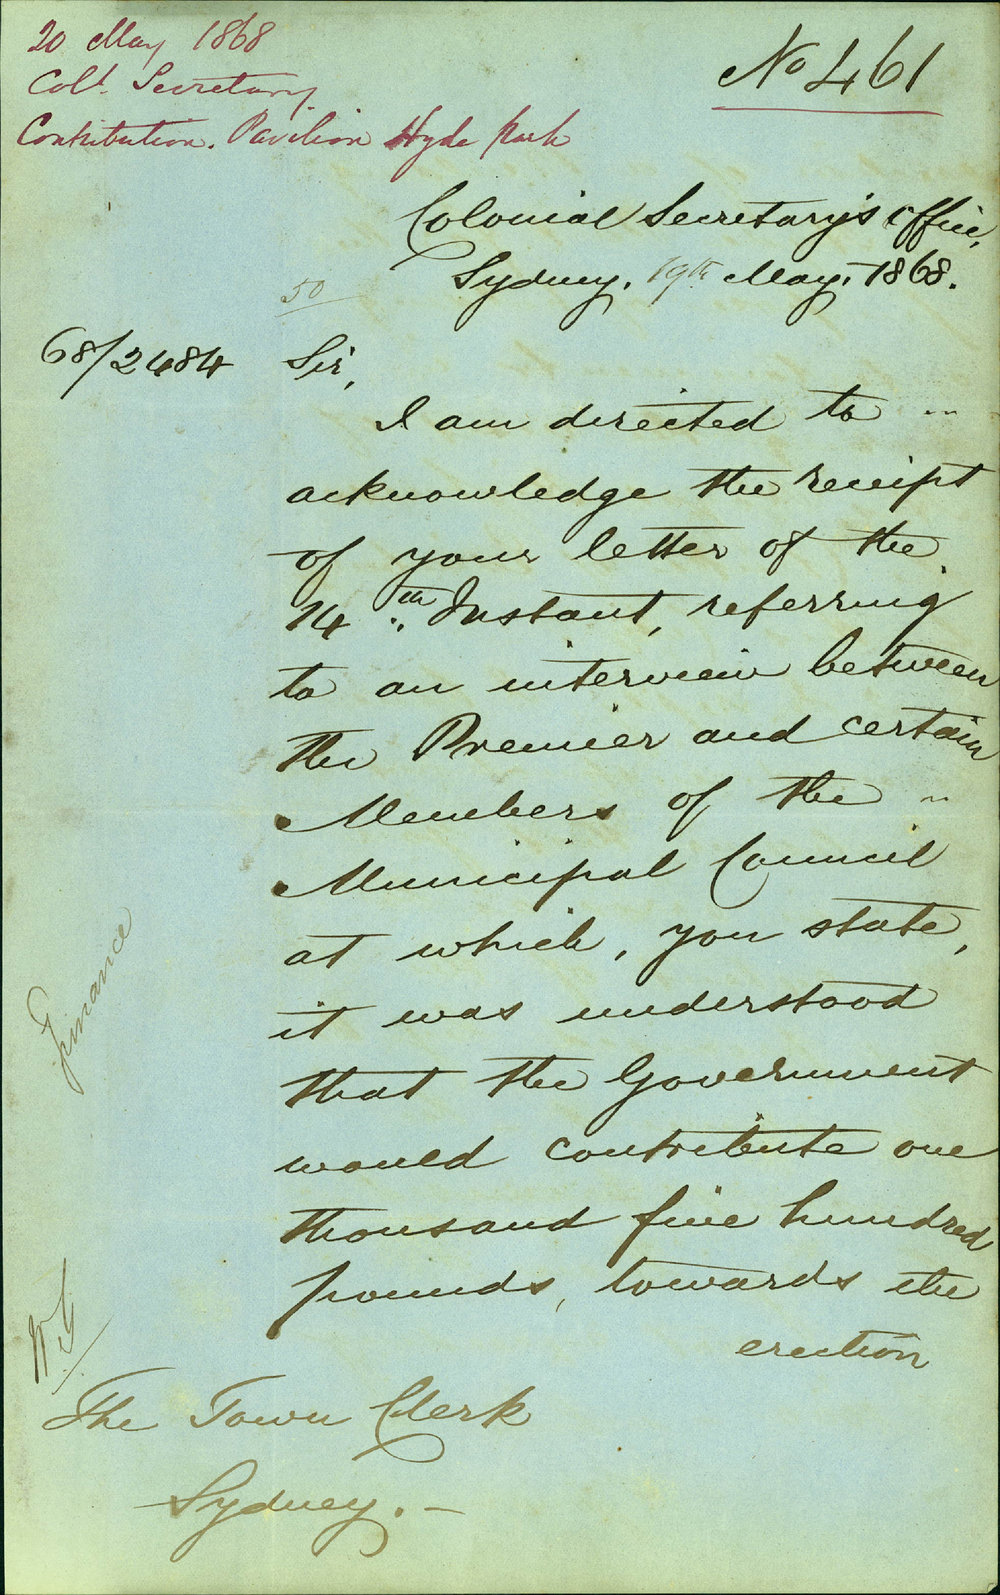 20 May 1868
Coll. Secretary.
Contribution. Pavilion Hyde Park
No 461
Colonial Secretary's Office,
Sydney, 19th May, 1868.
50
68/2484
Sir,
I am directed to
acknowledge the receipt
of your letter of the
14th Instant, referring
to an interview between
the Premier and certain
Members of the
Municipal Council
at which, you state,
it was understood
that the Government
would contribute one
thousand five hundred
pounds, towards the
erection
Finance
The Town Clerk
Sydney. –